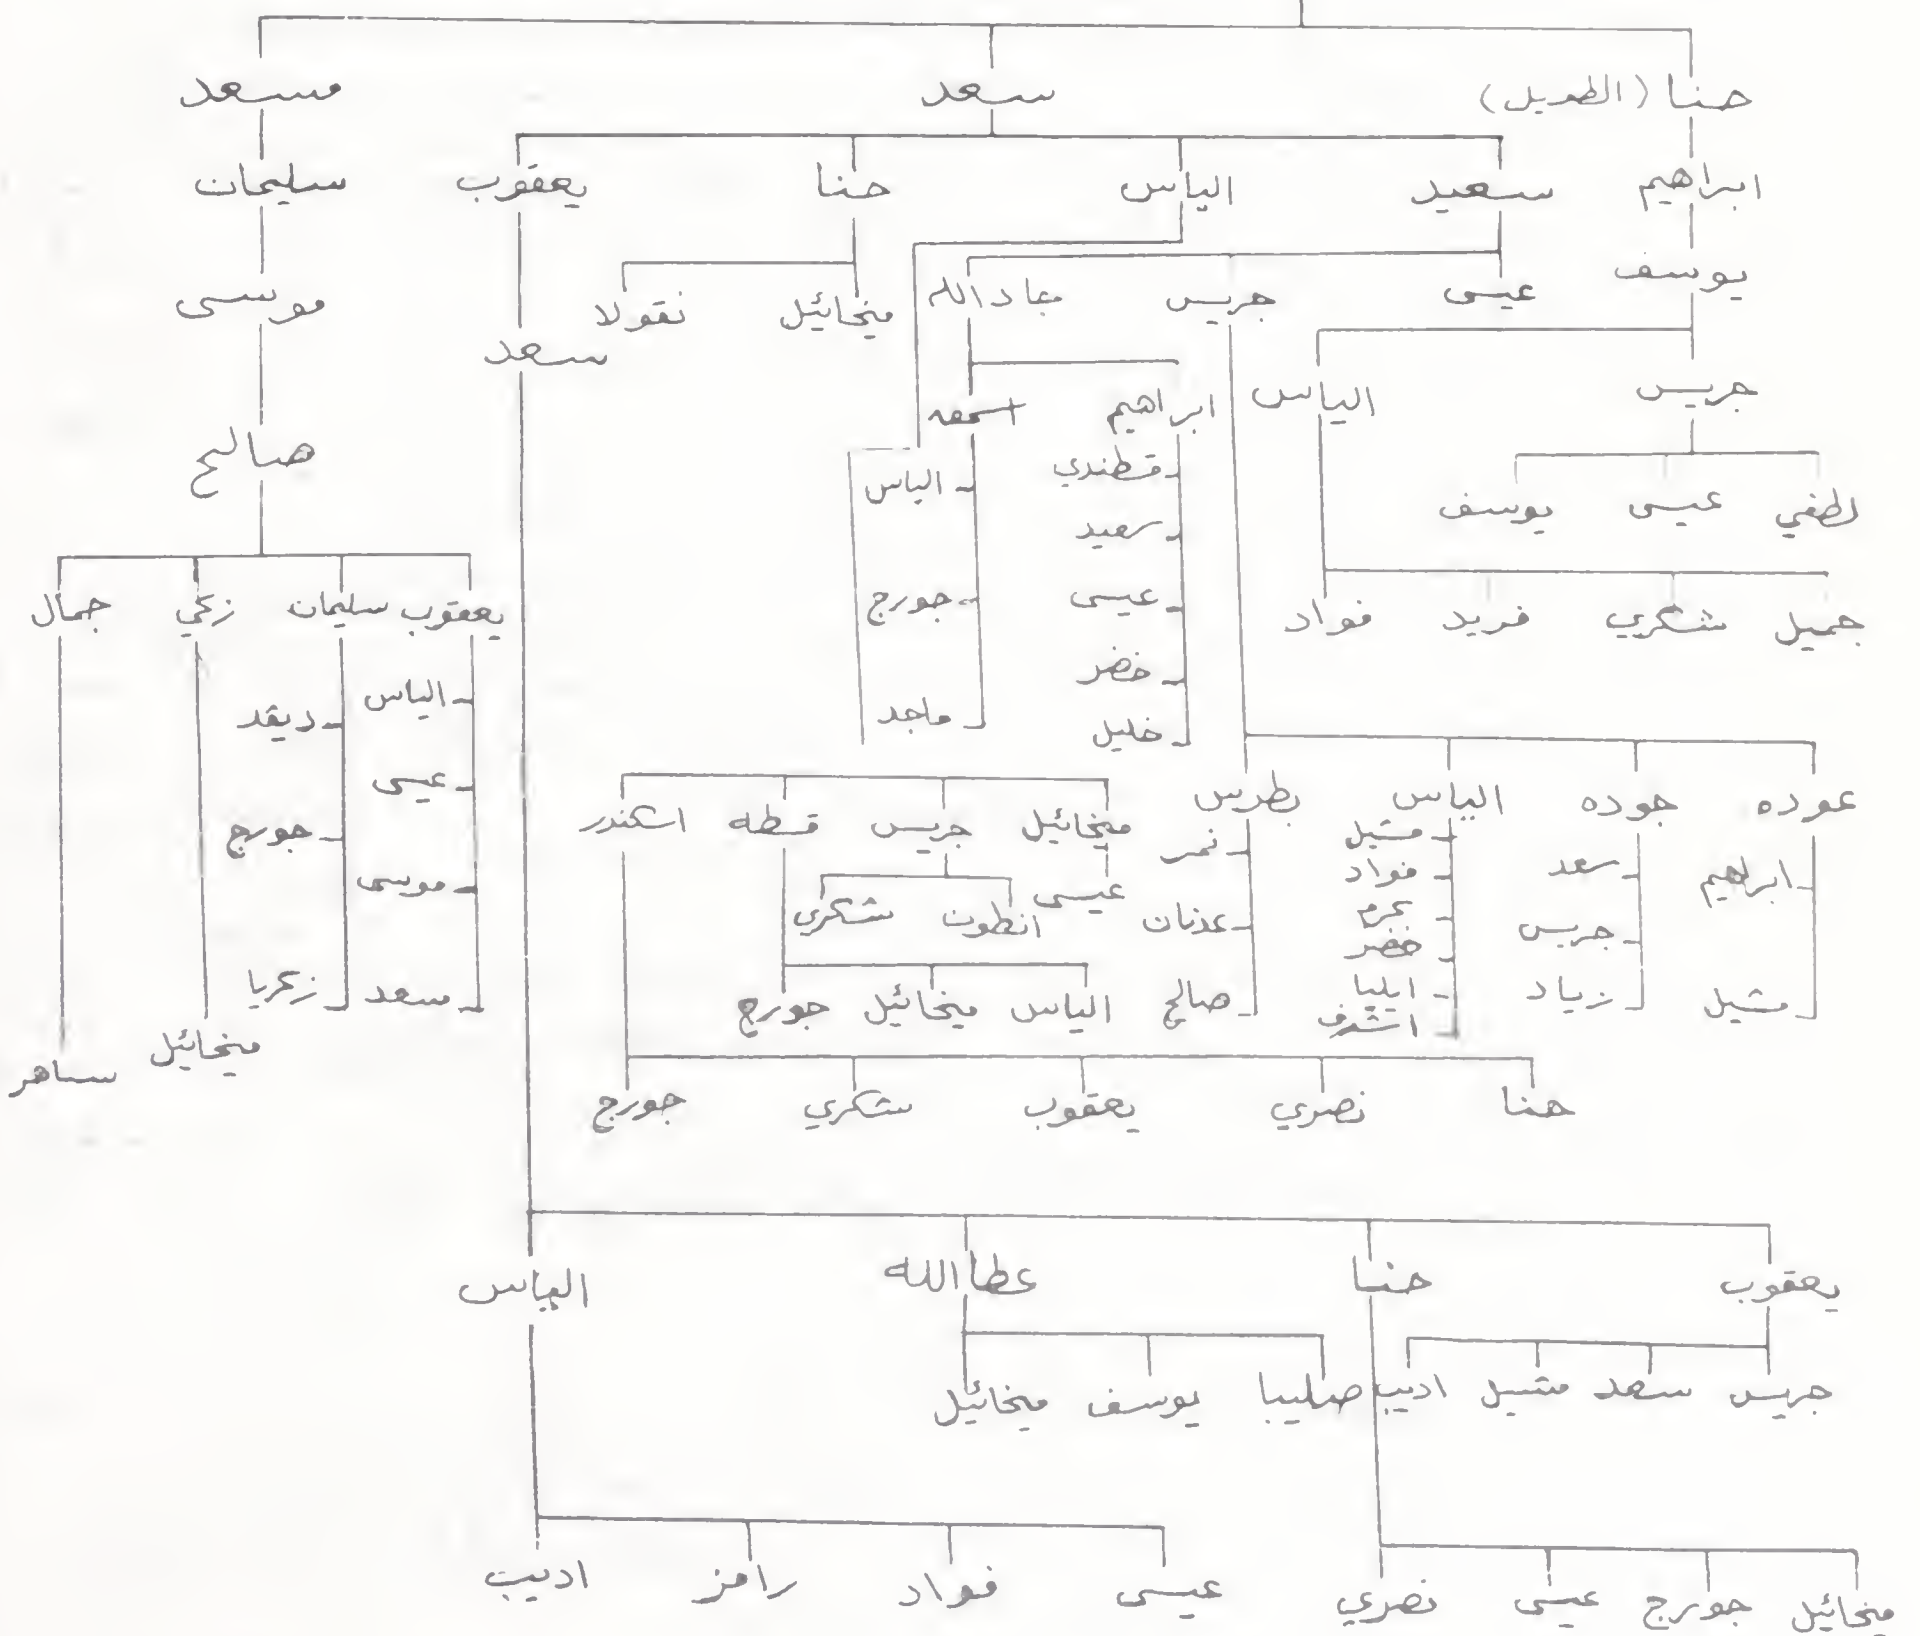 حنا (الطويل) سعد مسعد
ابراهيم سعيد الياس حنا يعقوب سليمان
يوسف عيسى جريس عادالله ميخائيل نقولا سعد موسى
جريس الياس ابراهيم اسحق صالح
لطفي عيسى يوسف
جميل شكري فريد فواد
قطندي
سعيد
عيسى
خضر
خليل
الياس
جورج
ماجد
يعقوب سليمان زكي جمال
الياس
عيسى
موسى
سعد
ديفد
جورج
زكريا
ميخائيل
ساهر
عوده جوده الياس بطرس
ابراهيم
مشيل
سعد
جريس
زياد
مشيل
فواد
خضر
ايليا
اشرف
نمر
عدنان
صالح
ميخائيل جريس قسطه اسكندر
عيسى
انطون شكري
الياس ميخائيل جورج
حنا نصري يعقوب شكري جورج
يعقوب حنا عطاالله الياس
جريس سعد مشيل اديب صليبا يوسف ميخائيل
ميخائيل جورج عيسى نصري عيسى فواد رامز اديب